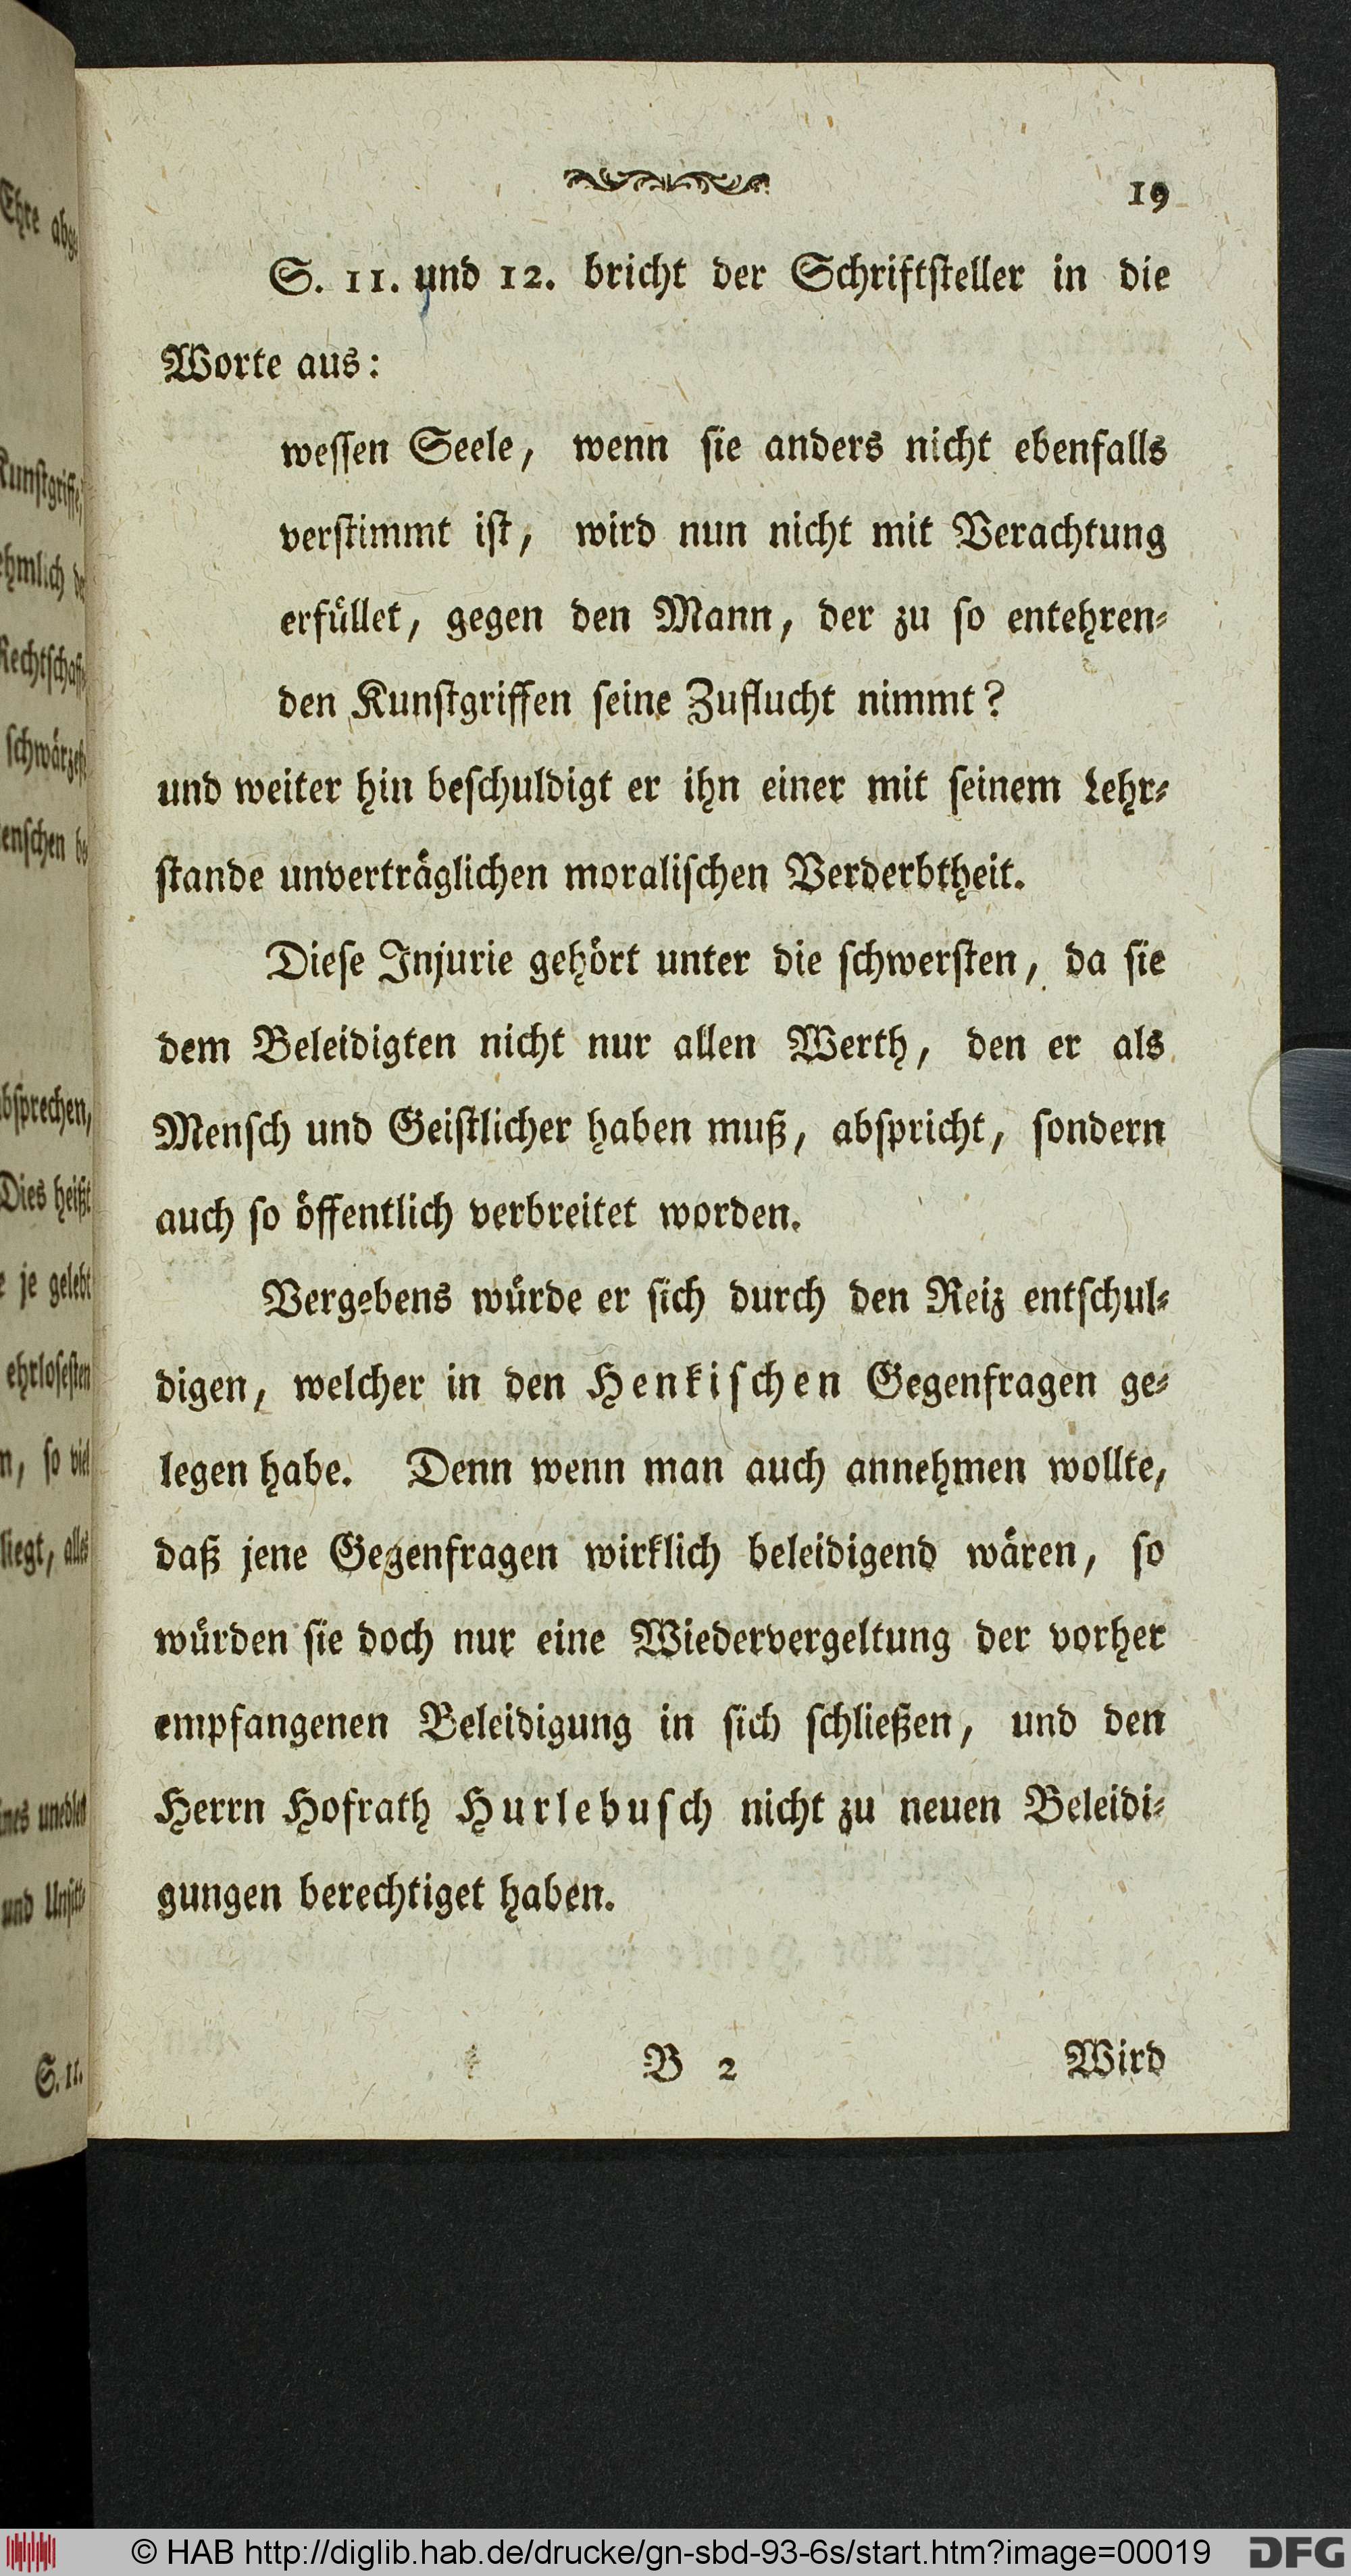 19
S. 11. und 12. bricht der Schriftsteller in die
Worte aus:
wessen Seele, wenn sie anders nicht ebenfalls
verstimmt ist, wird nun nicht mit Verachtung
erfüllet, gegen den Mann, der zu so entehren-
den Kunstgriffen seine Zuflucht nimmt?
und weiter hin beschuldigt er ihn einer mit seinem Lehr-
stande unverträglichen moralischen Verderbtheit.
Diese Injurie gehört unter die schwersten, da sie
dem Beleidigten nicht nur allen Werth, den er als
Mensch und Geistlicher haben muß, abspricht, sondern
auch so öffentlich verbreitet worden.
Vergebens würde er sich durch den Reiz entschul-
digen, welcher in den Henkischen Gegenfragen ge-
legen habe. Denn wenn man auch annehmen wollte,
daß jene Gegenfragen wirklich beleidigend wären, so
würden sie doch nur eine Wiedervergeltung der vorher
empfangenen Beleidigung in sich schließen, und den
Herrn Hofrath Hurlebusch nicht zu neuen Beleidi-
gungen berechtiget haben.
B 2 Wird
Ehre
absprechen,
Dies heißt
je gelebt
ehrlosesten
so viel
liegt, alles
und
S. 11.
© HAB http://diglib.hab.de/drucke/gn-sbd-93-6s/start.htm?image=00019
DFG